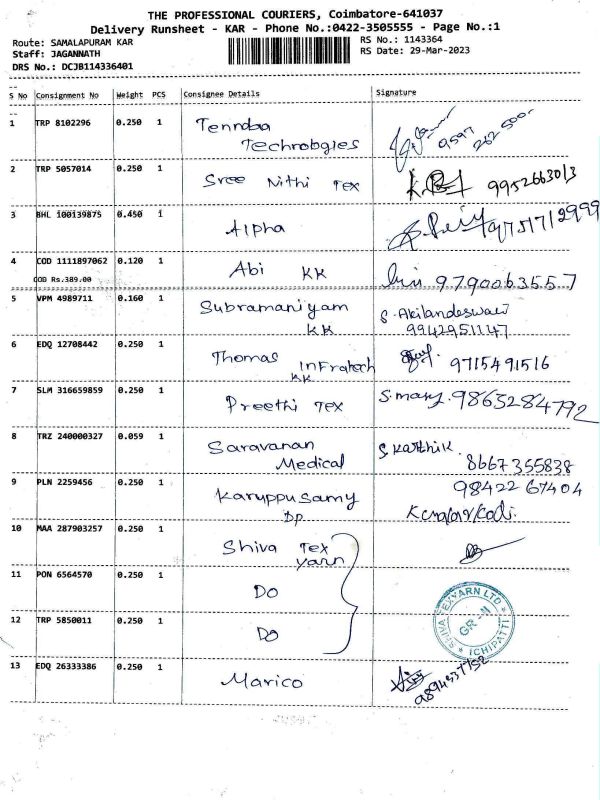 THE PROFESSIONAL COURIERS, Coimbatore-641037
Delivery Runsheet - KAR - Phone No.:0422-3505555 - Page No.:1
Route: SAMALAPURAM KAR
RS No.: 1143364
Staff: JAGANNATH
RS Date: 29-Mar-2023
DRS No.: DCJB114336401
S No Consignment No Weight PCS Consignee Details Signature
1 TRP 8102296 0.250 1 Tennoba
Technologies 9597 262 500
2 TRP 5057014 0.250 1 Sree Nithi Tex 9952663013
3 BHL 100139875 0.450 1 Alpha 9751712999
4 COD 1111897062 0.120 1 Abi KK 9790063557
COD Rs.389.00
5 VPM 4989711 0.160 1 Subramaniyam KK S. Akilandeswari
99429511147
6 EDQ 12708442 0.250 1 Thomas Infratech KK 9715491516
7 SLM 316659859 0.250 1 Preethi Tex S. mary. 9863284792
8 TRZ 240000327 0.059 1 Saravanan
Medical S. Karthik.
8667355838
9 PLN 2259456 0.250 1 Karuppusamy
DP 98422 67404
10 MAA 287903257 0.250 1 Shiva Tex
yarn
11 PON 6564570 0.250 1 Do
12 TRP 5850011 0.250 1 Do
SHIVA TEXYARN LTD
GR-II
ICHIPATTI
13 EDQ 26333386 0.250 1 Marico